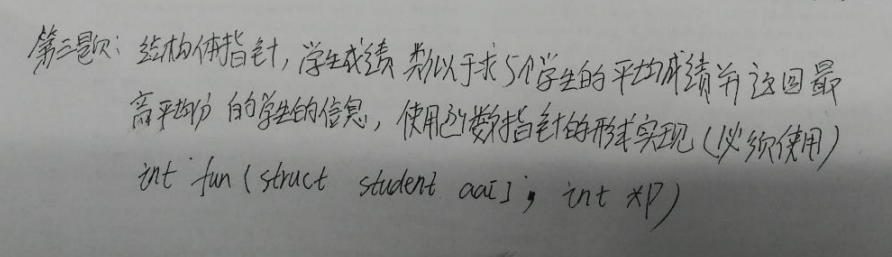 第三题：结构体指针，学生成绩 类似于求5个学生的平均成绩并返回最
高平均分的学生的信息，使用函数指针的形式实现（必须使用）
int fun (struct student aa[]; int *p)